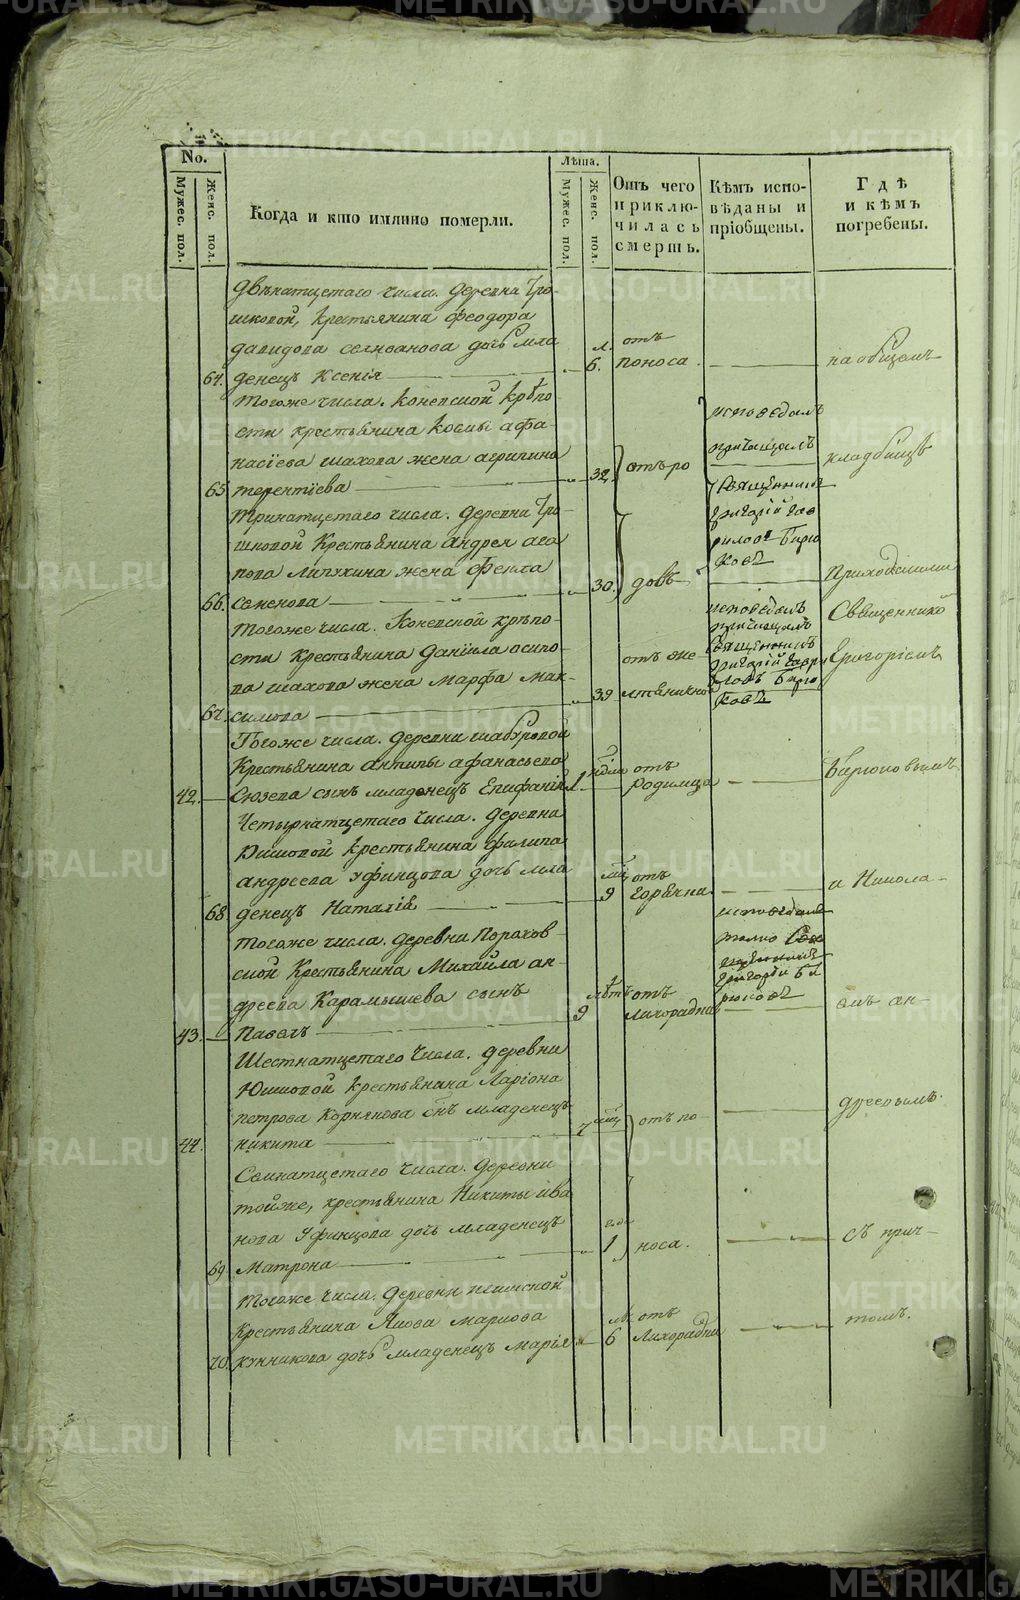 METRIKI.GASO-URAL.RU
No.
Мужес. пол.
Женс. пол.
Когда и кто имянно померли.
Лѣта.
Мужес. пол.
Женс. пол.
Отъ чего приклю-чилась смерть.
Кѣмъ испо-вѣданы и пріобщены.
Гдѣ и кѣмъ погребены.
двѣнатцетаго числа. деревни Тро-
шковой, крестьянина феодора
давидова селиванова дочь мла
64. денецъ Ксенія 6. отъ поноса. на общемъ
Тогоже числа. Коневской крѣпо-
сти крестьянина Космы афа-
насіева шахова жена агрипина
65 терентіева 32 отъ ро исповедалъ причащалъ священникъ кладбищѣ
Тринатцетаго числа. деревни Тро-
шковой Крестьянина андрея ага
пова Липухина жена Фекла
66. семенова 30. довъ приходскими
Тогоже числа. Коневской крѣпо-
сти крестьянина даніила осипо-
ва шахова жена марфа мак-
67. симова 39 исповедалъ причащалъ священникъ григорій Священнико Григоріемъ
Тогоже числа. деревни шабуровой
Крестьянина антипы афанасьева
42. Сюзева сынъ младенецъ Епифаній 1. отъ родимца Бирюковымъ
Четырнатцетаго числа. деревни
Юшковой крестьянина филипа
андреева Уфинцова дочь мла
68. денецъ Наталія 9 отъ горячки и Никола-
Тогоже числа. деревни Порохов-
ской Крестьянина Михайла ан-
дреева Карамышева сынъ
43. Павелъ 9 лѣтъ отъ лихорадки емъ ан-
Шестнатцетаго числа. деревни
Юшковой крестьянина Ларіона
петрова Корнякова сынъ младенецъ
44. никита 7 отъ по- дреевымъ.
Семнатцетаго числа. деревни
тойже, крестьянина Никиты ива
нова Уфинцова дочь младенецъ
69. Матрона 1 носа. съ прич-
Тогоже числа. деревни
Крестьянина Якова маркова
70. дочь младенецъ марія 6 отъ лихорадки томъ.